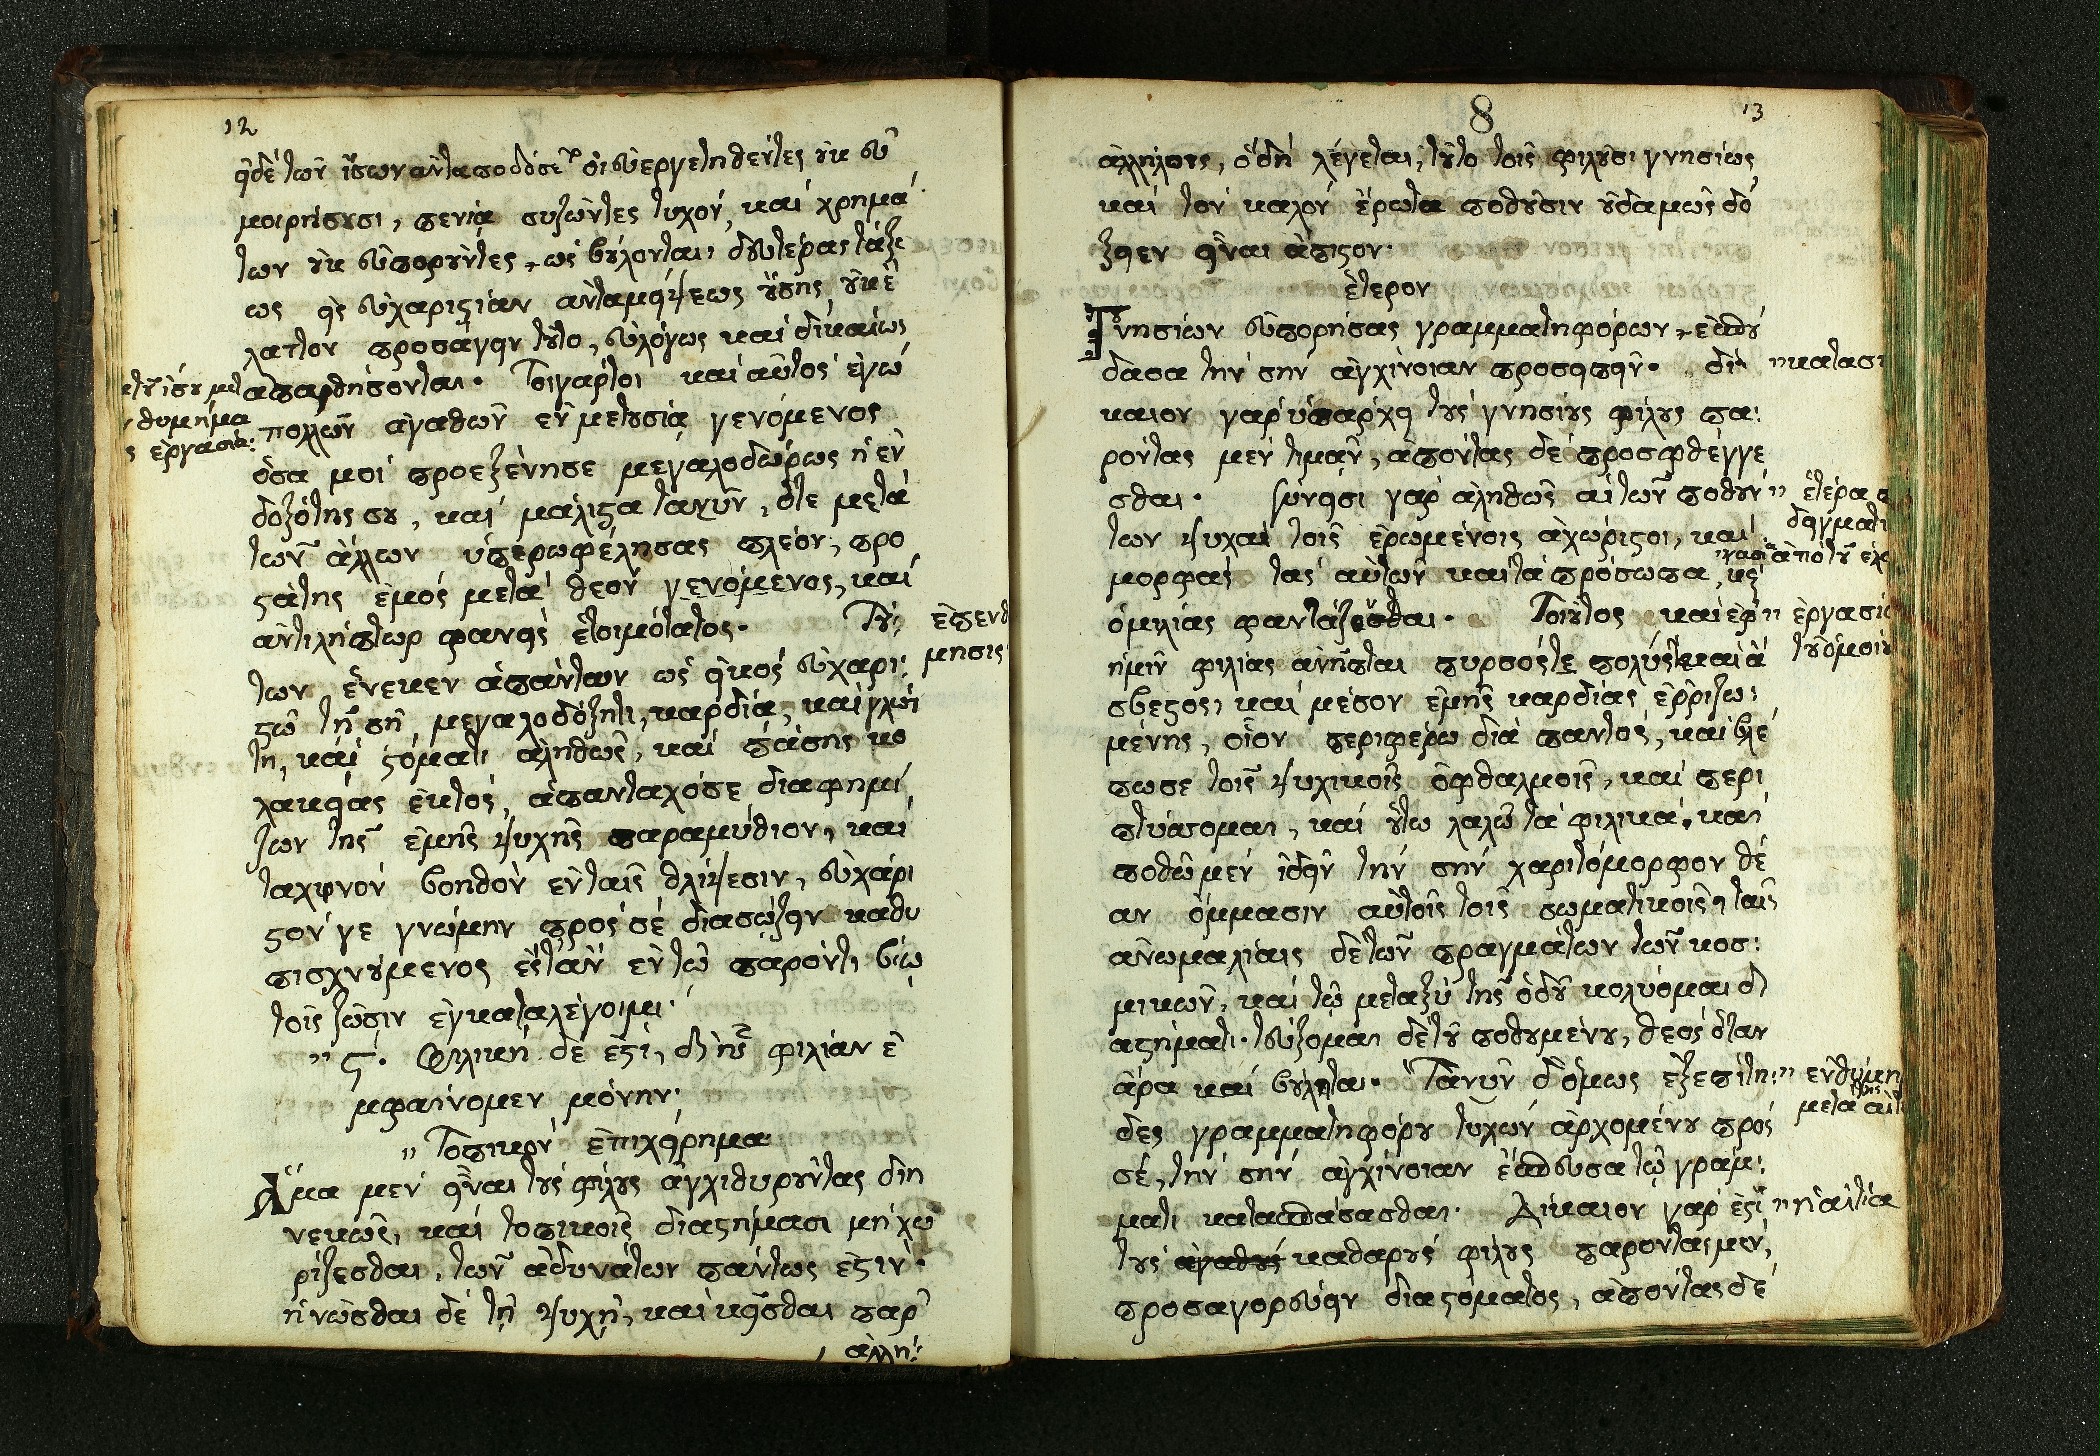 12
εἰ δὲ τῶν ἴσων ἀνταποδόσεων οἱ εὐεργετηθέντες οὐκ εὐ
μοιρήσουσι, πενίᾳ συζῶντες τυχόν, καὶ χρημά
των οὐκ εὐποροῦντες, ὡς βούλονται, δευτέρας τάξε
ως εἰς εὐχαριστίαν ἀνταμείψεως οὔσης, οὐκ ἔ
λαττον προσάγειν τοῦτο, εὐλόγως καὶ δικαίως
ἀπαρθήσονται. Τοιγάρτοι καὶ αὐτὸς ἐγὼ
πολλῶν ἀγαθῶν ἐν μετουσίᾳ γενόμενος
ὅσα μοι προεξένησε μεγαλοδώρως ἡ ἐν
δοξότης σου, καὶ μάλιστα τανῦν, ὅτε μετὰ
τῶν ἄλλων ὑπερωφέλησας πλέον, προ
στάτης ἐμὸς μετὰ θεὸν γενόμενος, καὶ
ἀντιλήπτωρ φανεὶς ἑτοιμότατος. Τού
των ἕνεκεν ἁπάντων ὡς εἰκὸς εὐχαρι
στῶ τῇ σῇ μεγαλοδόξητι, καρδίᾳ, καὶ γλώτ
τῃ, καὶ στόματι ἀληθῶς, καὶ πάσης κο
λακείας ἐκτός, ἁπανταχόσε διαφημί
ζων τῆς ἐμῆς ψυχῆς παραμύθιον, καὶ
ταχινὸν βοηθὸν ἐν ταῖς θλίψεσιν, εὐχάρι
στόν γε γνώμην πρὸς σὲ διασώζειν καθυ
πισχνούμενος ἔς τ' ἂν ἐν τῷ παρόντι βίῳ
τοῖς ζῶσιν ἐγκαταλέγοιμι.
" ϛ. Φιλικὴ δέ ἐστι, δι' ἧς φιλίαν ἐ
μφαίνομεν μόνην.
" Τοπικὸν ἐπιχείρημα
Ἅμα μὲν εἶναι τοὺς φίλους ἀγχιθυροῦντας διη
νεκῶς, καὶ τοπικοῖς διαστήμασι μὴ χω
ρίζεσθαι, τῶν ἀδυνάτων πάντως ἐστίν.
ἡνῶσθαι δὲ τῇ ψυχῇ, καὶ κεῖσθαι παρ'
ἀλλή
θυμήμα
ἐργασία:
ἐπενθ
μησις
8
13
ἀλλήλοις, ὃ δὴ λέγεται, τοῦτο τοῖς φιλοῦσι γνησίως,
καὶ τὸν καλὸν ἔρωτα ποθοῦσιν οὐδαμῶς δό
ξειεν εἶναι ἄπιστον.
ἕτερον
Γνησίων εὐπορήσας γραμματηφόρων, ἐσπού
δασα τὴν σὴν ἀγχίνοιαν προσειπεῖν. δί
καιον γὰρ ὑπάρχει τοὺς γνησίους φίλους πα
ρόντας μὲν τιμᾶν, ἀπόντας δὲ προσφθέγγε
σθαι. σύνεισι γὰρ ἀληθῶς αἱ τῶν ποθούν
των ψυχαὶ τοῖς ἐρωμένοις ἀχώριστοι, καὶ
μορφὰς τὰς αὐτῶν καὶ τὰ πρόσωπα, καὶ
ὁμιλίας φαντάζεσθαι. Τοιοῦτος καὶ ἐφ'
ἡμῖν φιλίας ἀνῆπται πυρσός τε πολὺς καὶ ἄ
σβεστος, καὶ μέσον ἐμῆς καρδίας ἐρριζω
μένης, οἷον περιφέρω διὰ παντός, καὶ βλέ
πω σε τοῖς ψυχικοῖς ὀφθαλμοῖς, καὶ περι
πτύσσομαι, καὶ οὕτω λαλῶ τὰ φιλικά. καὶ
ποθῶ μὲν ἰδεῖν τὴν σὴν χαριτόμορφον θέ
αν ὄμμασιν αὐτοῖς τοῖς σωματικοῖς, ταῖς
ἀνωμαλίαις δὲ τῶν πραγμάτων τῶν κοσ
μικῶν, καὶ τῷ μεταξὺ τῆς ὁδοῦ κολύομαι δι
αστήματι. τεύξομαι δὲ τοῦ ποθουμένου, θεὸς ὅταν
ἄρα καὶ βούληται. Τανῦν δ' ὅμως ἐξεπίτη
δες γραμματηφόρου τυχὼν ἀρχομένου πρός
σέ, τὴν σὴν ἀγχίνοιαν ἔσπευσα τῷ γράμ
ματι κατασπάσασθαι. Δίκαιον γάρ ἐστι
τοὺς ἀγαθοὺς καθαροὺς φίλους παρόντας μὲν,
προσαγορεύειν διὰ στόματος, ἀπόντας δὲ
" κατασ
" ἑτέρα
δειγματι
ἀπὸ τοῦ
" ἐργασία
τοῦ ὁμοίου
" ἐνθύμη
μετὰ
" ἡ αἰτία